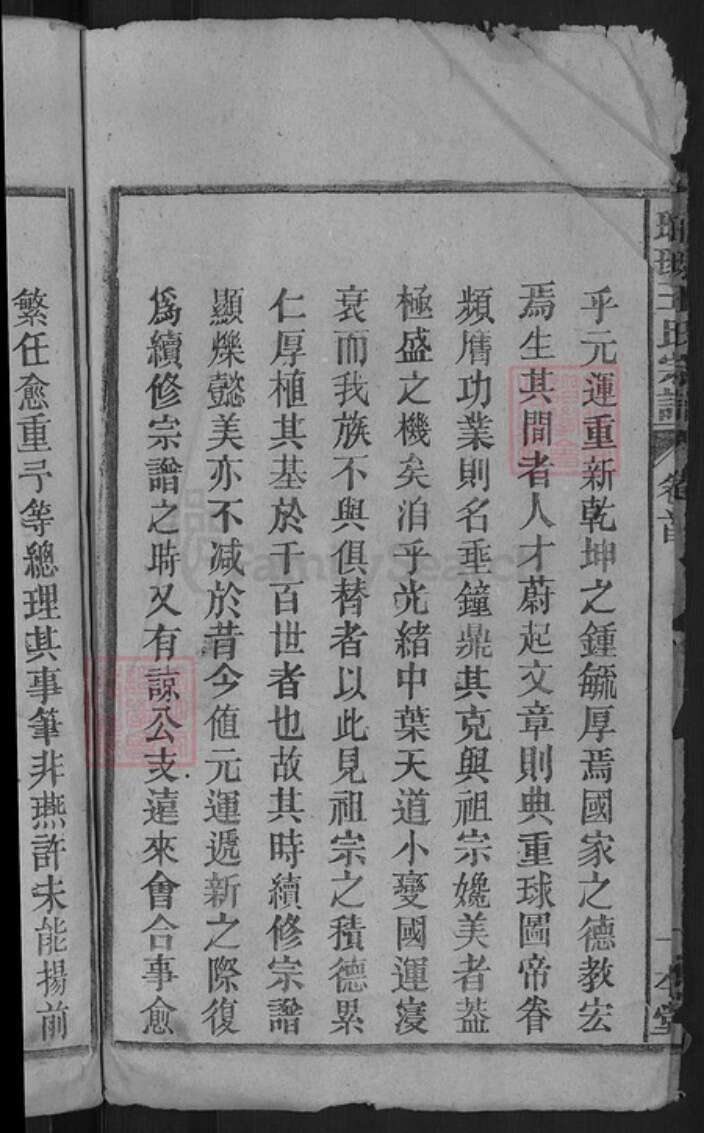 瑯琊王氏宗譜 卷首
一本堂
乎元運重新乾坤之鍾毓厚焉國家之德教宏
焉生其間者人才蔚起文章則典重球圖帝眷
頻膺功業則名垂鐘鼎其克與祖宗媲美者葢
極盛之機矣洎乎光緒中葉天道小變國運寖
衰而我族不與俱替者以此見祖宗之積德累
仁厚植其基於千百世者也故其時續修宗譜
顯爍懿美亦不減於昔今值元運遞新之際復
爲續修宗譜之時又有諒公支遠來會合事愈
繁任愈重予等總理其事筆非燕許未能揚前
FamilySearch